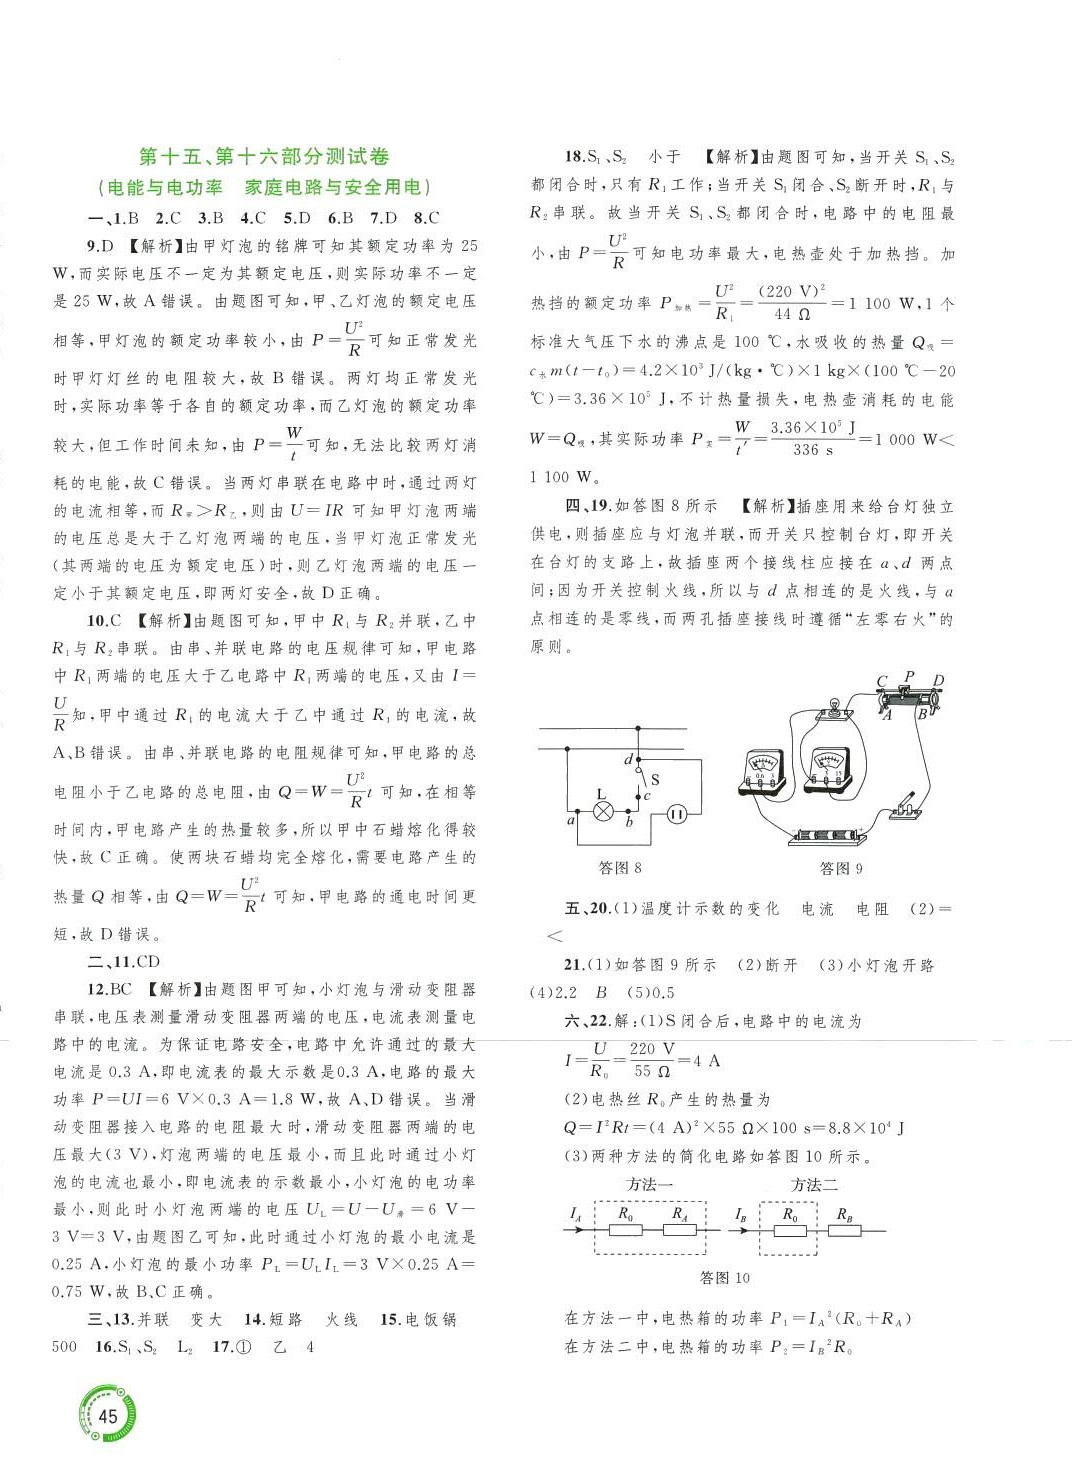 第十五、第十六部分测试卷
(电能与电功率　家庭电路与安全用电)
一、1.B 2.C 3.B 4.C 5.D 6.B 7.D 8.C
9.D 【解析】由甲灯泡的铭牌可知其额定功率为 25
W,而实际电压不一定为其额定电压,则实际功率不一定
是 25 W,故 A 错误。由题图可知,甲、乙灯泡的额定电压
相等,甲灯泡的额定功率较小,由 P=U²/R可知正常发光
时甲灯灯丝的电阻较大,故 B 错误。两灯均正常发光
时,实际功率等于各自的额定功率,而乙灯泡的额定功率
较大,但工作时间未知,由 P=W/t可知,无法比较两灯消
耗的电能,故 C 错误。当两灯串联在电路中时,通过两灯
的电流相等,而 R甲>R乙,则由 U=IR 可知甲灯泡两端
的电压总是大于乙灯泡两端的电压,当甲灯泡正常发光
(其两端的电压为额定电压)时,则乙灯泡两端的电压一
定小于其额定电压,即两灯安全,故 D 正确。
10.C 【解析】由题图可知,甲中 R₁与 R₂并联,乙中
R₁与 R₂串联。由串、并联电路的电压规律可知,甲电路
中 R₁两端的电压大于乙电路中 R₁两端的电压,又由 I=
U/R知,甲中通过 R₁的电流大于乙中通过 R₁的电流,故
A、B 错误。由串、并联电路的电阻规律可知,甲电路的总
电阻小于乙电路的总电阻,由 Q=W=U²/R t 可知,在相等
时间内,甲电路产生的热量较多,所以甲中石蜡熔化得较
快,故 C 正确。使两块石蜡均完全熔化,需要电路产生的
热量 Q 相等,由 Q=W=U²/R t 可知,甲电路的通电时间更
短,故 D 错误。
二、11.CD
12.BC 【解析】由题图甲可知,小灯泡与滑动变阻器
串联,电压表测量滑动变阻器两端的电压,电流表测量电
路中的电流。为保证电路安全,电路中允许通过的最大
电流是 0.3 A,即电流表的最大示数是0.3 A,电路的最大
功率 P=UI=6 V×0.3 A=1.8 W,故 A、D 错误。当滑
动变阻器接入电路的电阻最大时,滑动变阻器两端的电
压最大(3 V),灯泡两端的电压最小,而且此时通过小灯
泡的电流也最小,即电流表的示数最小,小灯泡的电功率
最小,则此时小灯泡两端的电压 U_L=U-U滑=6 V-
3 V=3 V,由题图乙可知,此时通过小灯泡的最小电流是
0.25 A,小灯泡的最小功率 P_L=U_L I_L=3 V×0.25 A=
0.75 W,故 B、C 正确。
三、13.并联　变大　14.短路　火线　15.电饭锅
500　16.S₁、S₂　L₂　17.①　乙　4
45
18.S₁、S₂　小于　【解析】由题图可知,当开关 S₁、S₂
都闭合时,只有 R₁工作;当开关 S₁闭合、S₂断开时,R₁与
R₂串联。故当开关 S₁、S₂都闭合时,电路中的电阻最
小,由 P=U²/R可知电功率最大,电热壶处于加热挡。加
热挡的额定功率 P加热=U²/R₁=(220 V)²/44 Ω=1 100 W,1 个
标准大气压下水的沸点是 100 ℃,水吸收的热量 Q吸=
c水m(t-t₀)=4.2×10³ J/(kg·℃)×1 kg×(100 ℃-20
℃)=3.36×10⁵ J,不计热量损失,电热壶消耗的电能
W=Q吸,其实际功率 P实=W/t′=3.36×10⁵ J/336 s=1 000 W<
1 100 W。
四、19.如答图 8 所示　【解析】插座用来给台灯独立
供电,则插座应与灯泡并联,而开关只控制台灯,即开关
在台灯的支路上,故插座两个接线柱应接在 a、d 两点
间;因为开关控制火线,所以与 d 点相连的是火线,与 a
点相连的是零线,而两孔插座接线时遵循“左零右火”的
原则。
d
S
c
L
a
b
答图 8
C P D
A B
答图 9
五、20.(1)温度计示数的变化　电流　电阻　(2)=
<
21.(1)如答图 9 所示　(2)断开　(3)小灯泡开路
(4)2.2　B　(5)0.5
六、22.解:(1)S 闭合后,电路中的电流为
I=U/R₀=220 V/55 Ω=4 A
(2)电热丝 R₀产生的热量为
Q=I²Rt=(4 A)²×55 Ω×100 s=8.8×10⁴ J
(3)两种方法的简化电路如答图 10 所示。
方法一　方法二
I_A R₀ R_A I_B R₀ R_B
答图 10
在方法一中,电热箱的功率 P₁=I_A²(R₀+R_A)
在方法二中,电热箱的功率 P₂=I_B²R₀